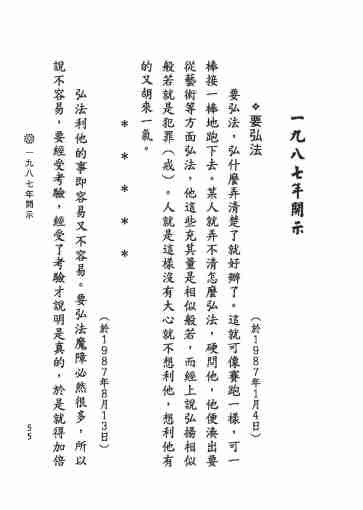 一九八七年開示
❖要弘法
（於1987年1月4日）
要弘法，弘什麼弄清楚了就好辦了。這就可像賽跑一樣，可一
棒接一棒地跑下去。某人就弄不清怎麼弘法，硬問他，他便湊出要
從藝術等方面弘法，他這些充其量是相似般若，而經上說弘揚相似
般若就是犯罪（戒）。人就是這樣沒有大心就不想利他，想利他有
的又胡來一氣。
＊＊＊＊＊
（於1987年8月13日）
弘法利他的事即容易又不容易。要弘法魔障必然很多，所以
說不容易，要經受考驗，經受了考驗才說明是真的，於是就得加倍
一九八七年開示
55